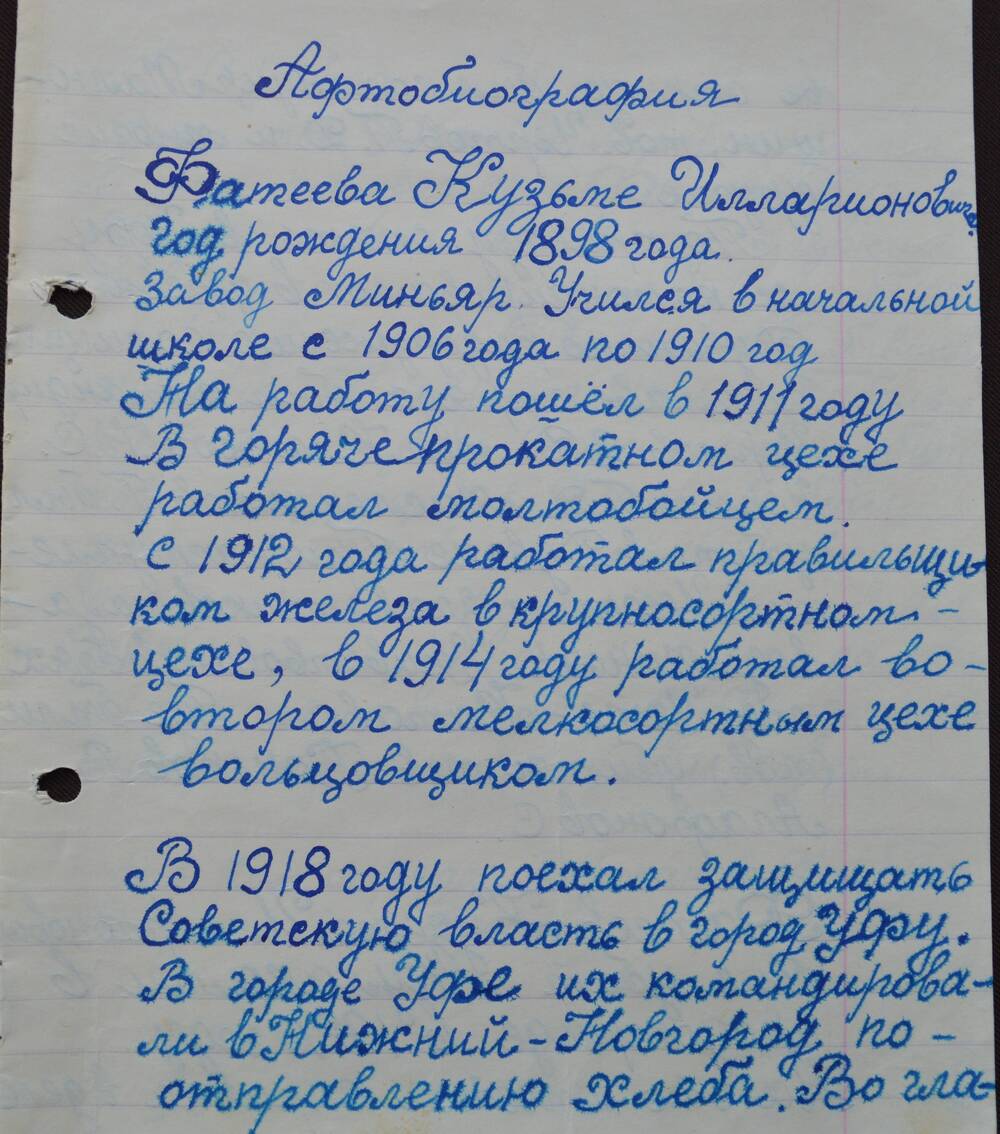 Афтобиография
Фатеева Кузьме Илларионовича.
Год рождения 1898 года.
Завод Миньяр. Учился в начальной
школе с 1906 года по 1910 год
На работу пошёл в 1911 году
В горячепрокатном цехе
работал молтобойцем.
С 1912 года работал правильщи-
ком железа в крупносортном -
цехе, в 1914 году работал во -
втором мелкосортным цехе
вольцовщиком.
В 1918 году поехал защищать
Советскую власть в город Уфу.
В городе Уфе их командирова-
ли в Нижний-Новгород по -
отправлению хлеба. Во гла-